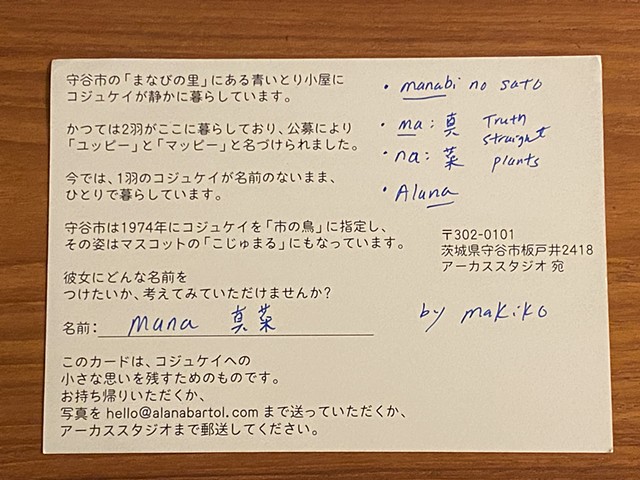 守谷市の「まなびの里」にある青いとり小屋に
コジュケイが静かに暮らしています。
かつては2羽がここに暮らしており、公募により
「ユッピー」と「マッピー」と名づけられました。
今では、1羽のコジュケイが名前のないまま、
ひとりで暮らしています。
守谷市は1974年にコジュケイを「市の鳥」に指定し、
その姿はマスコットの「こじゅまる」にもなっています。
彼女にどんな名前を
つけたいか、考えてみていただけませんか?
名前: mana 真菜
このカードは、コジュケイへの
小さな思いを残すためのものです。
お持ち帰りいただくか、
写真を hello@alanabartol.com まで送っていただくか、
アーカススタジオまで郵送してください。
• manabi no sato
• ma: 真 Truth
straight
• na: 菜 plants
• Alana
〒302-0101
茨城県守谷市板戸井2418
アーカススタジオ 宛
by makiko